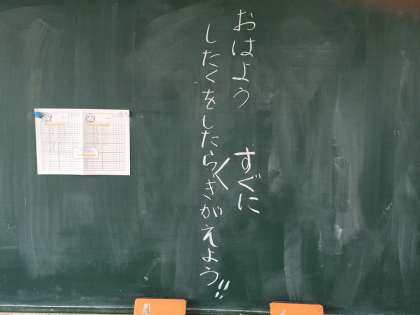 おはよう
したくをしたら すぐに きがえよう!!